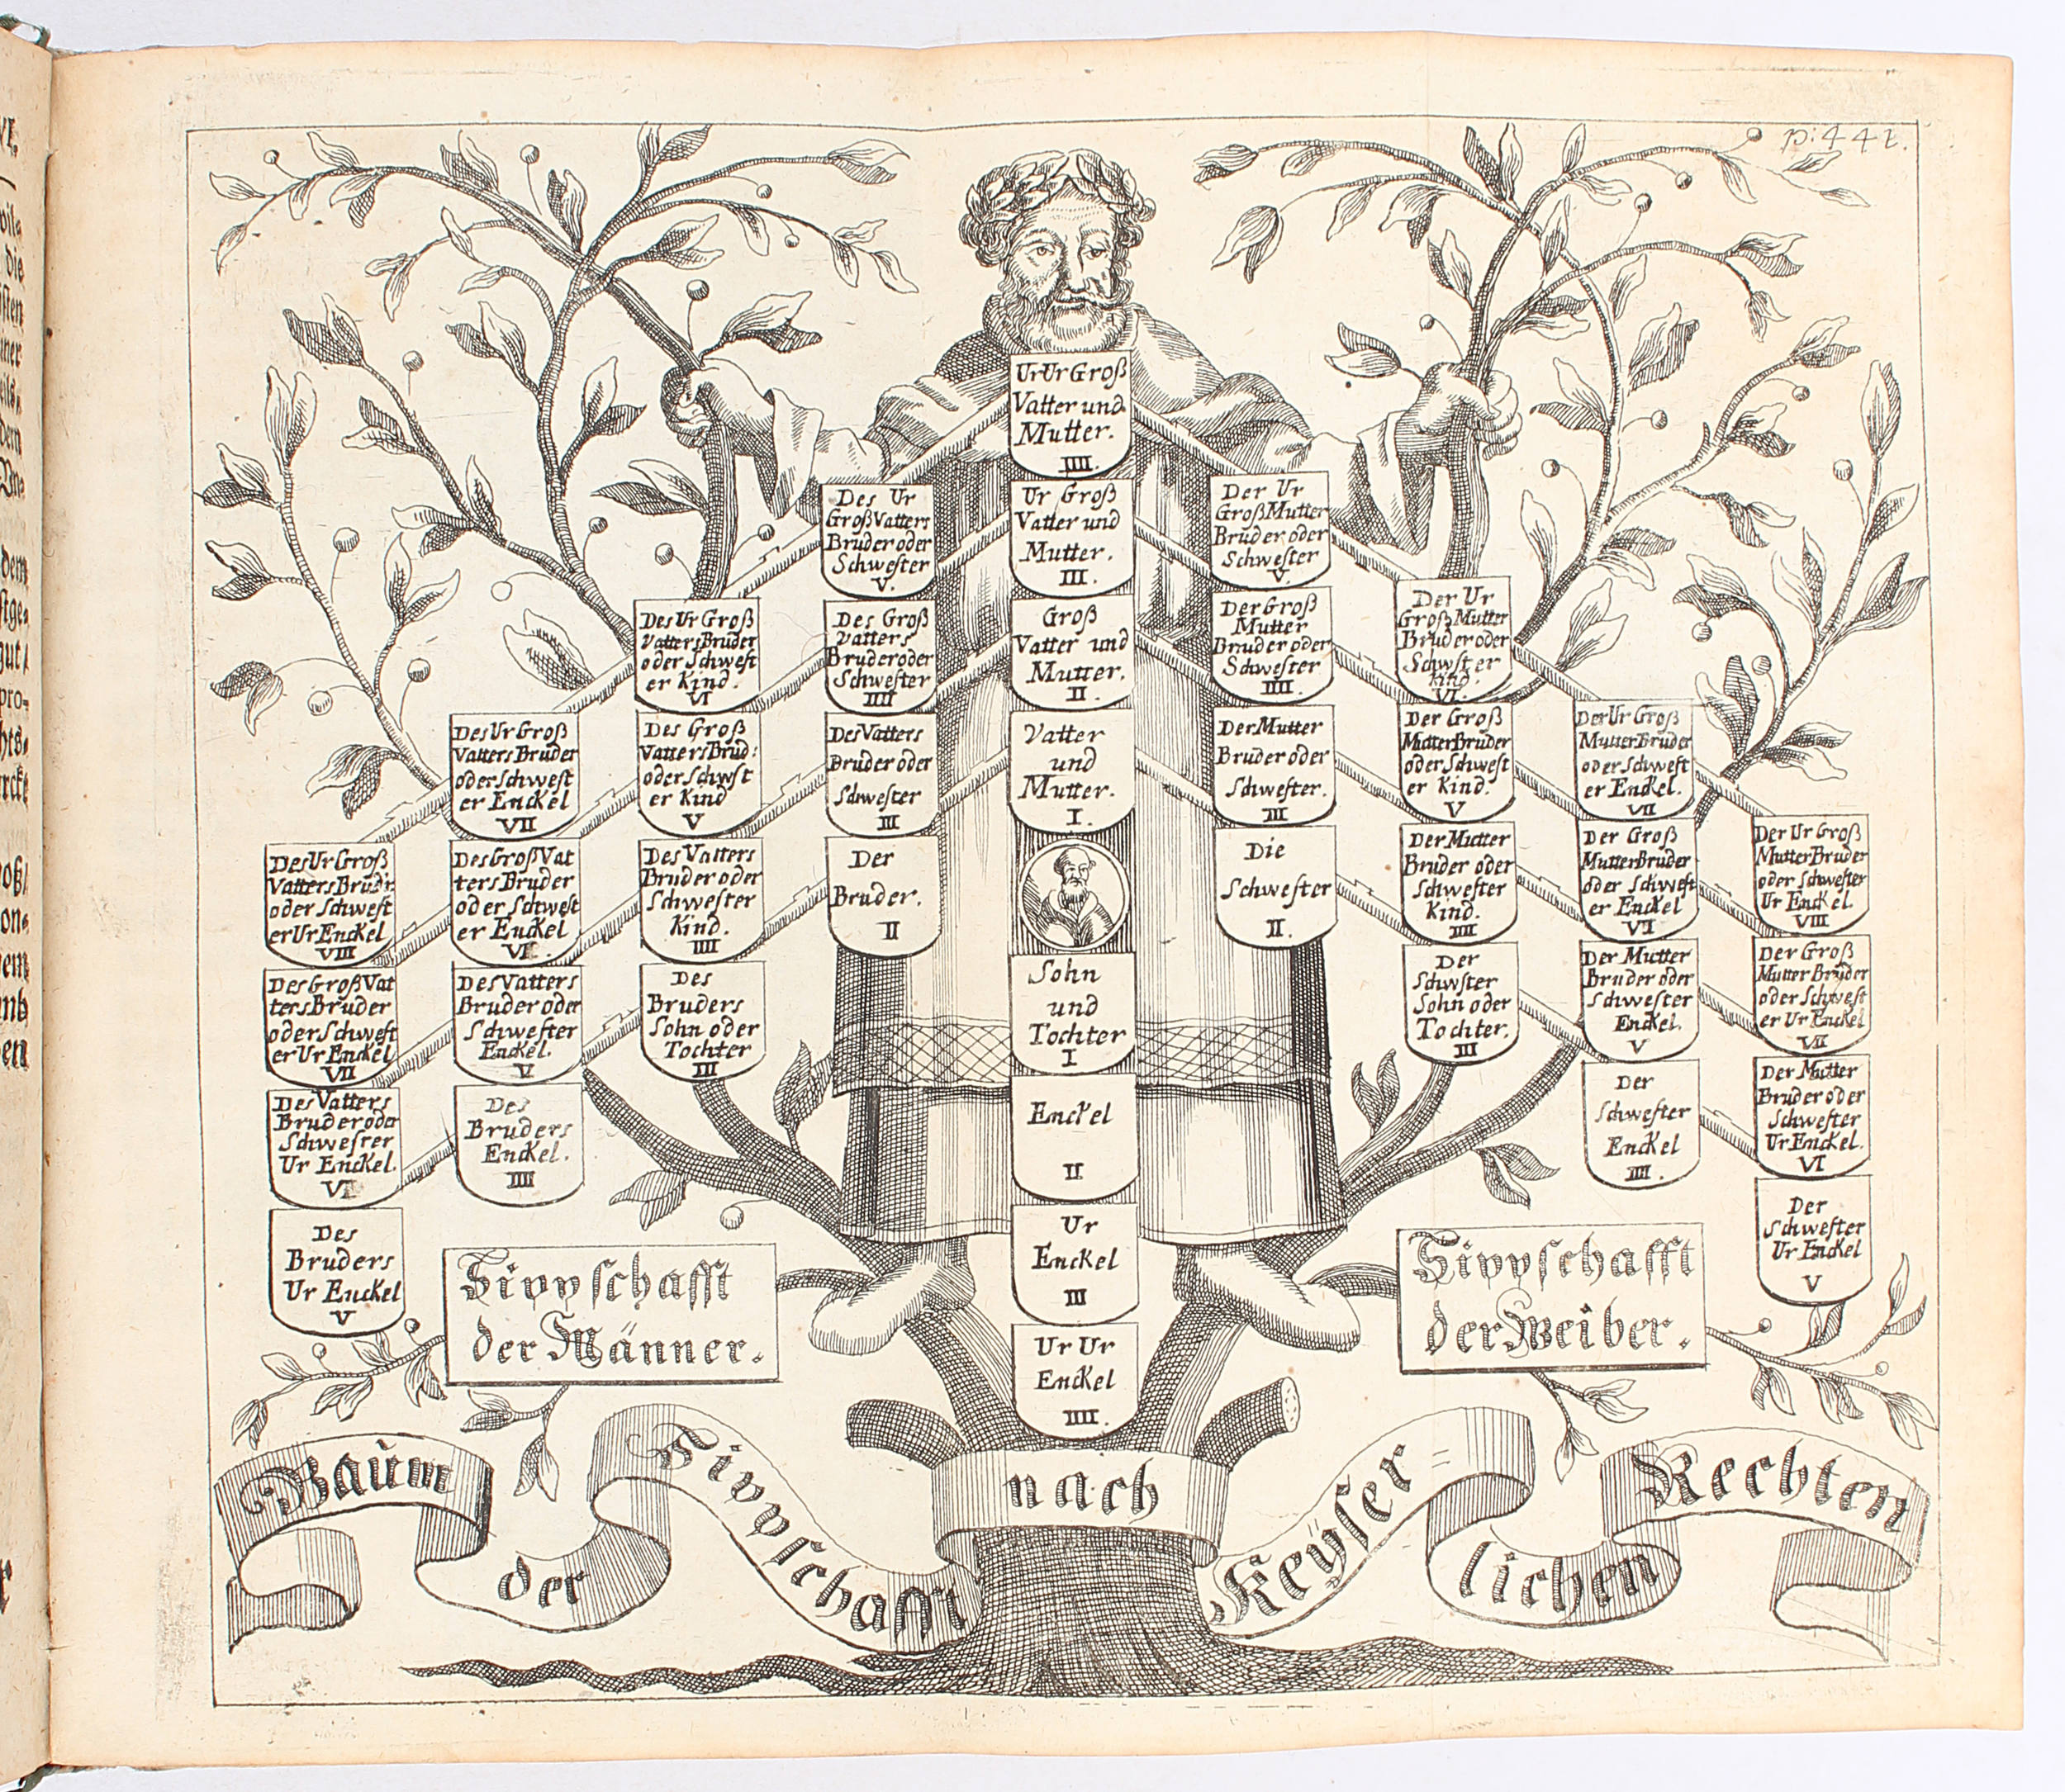 p: 441.
UrUr Groß
Vatter und
Mutter.
IIII.
Des Ur
GroßVatters
Bruder oder
Schwester
V.
Ur Groß
Vatter und
Mutter.
III.
Der Ur
GroßMutter
Bruder oder
Schwester
V.
Des Ur Groß
Vatters Bruder
oder Schwest
er Kind.
VI
Des Groß
Vatters
Bruder oder
Schwester
IIII
Groß
Vatter und
Mutter.
II.
Der Groß
Mutter
Bruder oder
Schwester
IIII.
Der Ur
Groß Mutter
Bruder oder
Schwster
Kind.
VI.
Des Ur Groß
Vatters Bruder
oder Schwest
er Enckel
VII
Des Groß
Vatters Brud:
oder Schwst
er Kind
V
Des Vatters
Bruder oder
Schwester
III
Vatter
und
Mutter.
I.
Der Mutter
Bruder oder
Schwester.
III
Der Groß
Mutter Bruder
oder Schwest
er Kind.
V
Der Ur Groß
Mutter Bruder
oder Schwest
er Enckel.
VII
Des Ur Groß
Vatters Brud'r
oder Schwest
er Ur Enckel
VIII
Des Groß Vat
ters Bruder
oder Schwest
er Enckel
VI.
Des Vatters
Bruder oder
Schwester
Kind.
IIII
Der
Bruder.
II
Die
Schwester
II.
Der Mutter
Bruder oder
Schwester
Kind.
IIII
Der Groß
Mutter Bruder
oder Schwest
er Enckel
VI
Der Ur Groß
Mutter Bruder
oder Schwester
Ur Enckel.
VIII
Des Groß Vat
ters Bruder
oder Schwest
er Ur Enckel
VII
Des Vatters
Bruder oder
Schwester
Enckel.
V
Des
Bruders
Sohn oder
Tochter
III
Sohn
und
Tochter
I
Der
Schwster
Sohn oder
Tochter.
III
Der Mutter
Bruder oder
Schwester
Enckel.
V
Der Groß
Mutter Bruder
oder Schwest
er Ur Enckel
VII
Des Vatters
Bruder oder
Schwester
Ur Enckel.
VI
Des
Bruders
Enckel.
IIII
Enckel
II
Der
Schwester
Enckel
IIII.
Der Mutter
Bruder oder
Schwester
Ur Enckel.
VI
Des
Bruders
Ur Enckel
V
Ur
Enckel
III
Der
Schwester
Ur Enckel
V
Sippschafft
der Männer.
Sippschafft
der Weiber.
Ur Ur
Enckel
IIII.
Baum der Sippschafft nach Keyser=lichen Rechten